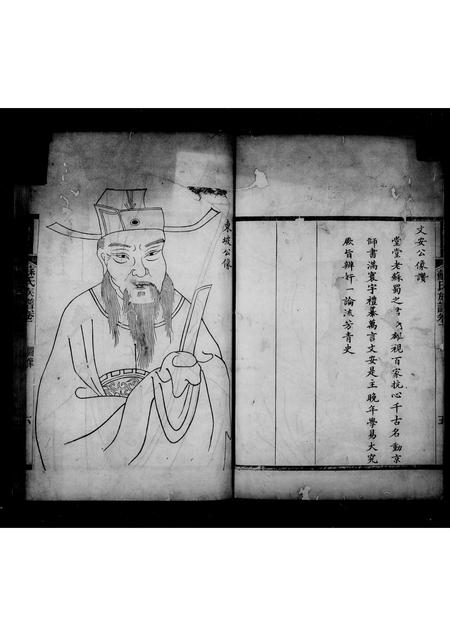 文安公像讚
堂堂老蘇蜀之視百家抗心千古名動京
師書滿寰宇禮纂萬言文安是主晚年學易大究
厥旨辨奸一論流芳青史
五
東坡公像
蘇氏族譜卷
六